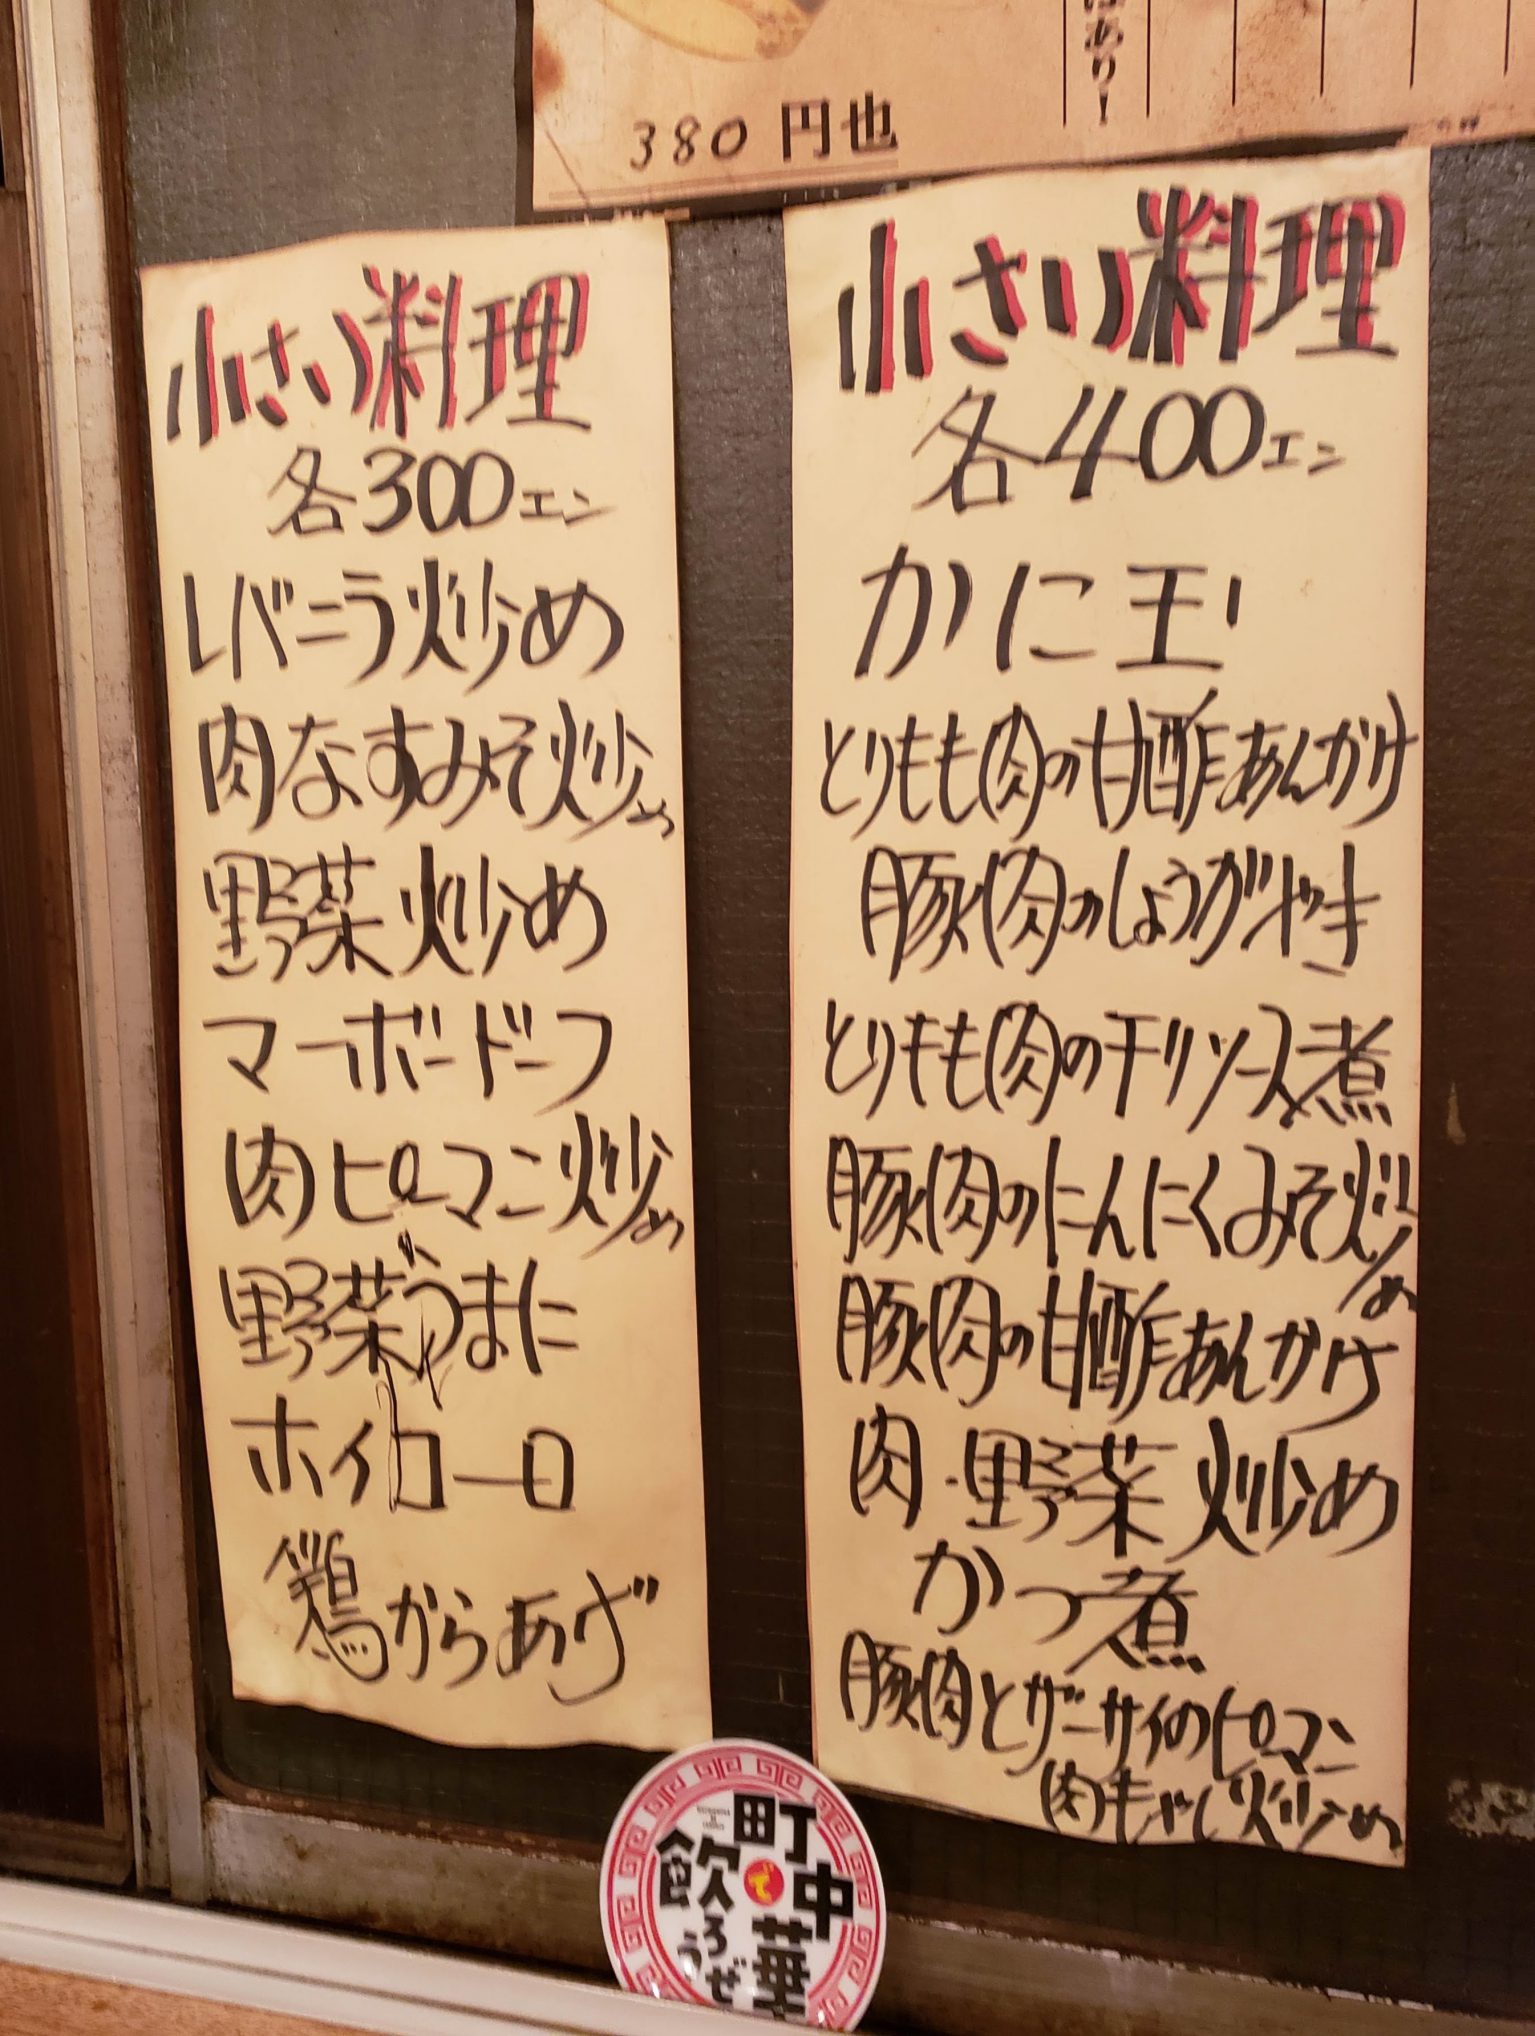 はあり!
380 円也
小さい料理
各300エン
レバニラ炒め
肉なすみそ炒め
野菜炒め
マーボードーフ
肉ピーマン炒め
野菜うまに
ホイコーロ
鶏からあげ
小さい料理
各400エン
かに玉
とりもも肉の甘酢あんかけ
豚肉のしょうがやき
とりもも肉のチリソース煮
豚肉のにんにくみそ炒め
豚肉の甘酢あんかけ
肉・野菜炒め
かつ煮
豚肉とザーサイのピーマン
肉もやし炒め
町中華
で
飲ろうぜ